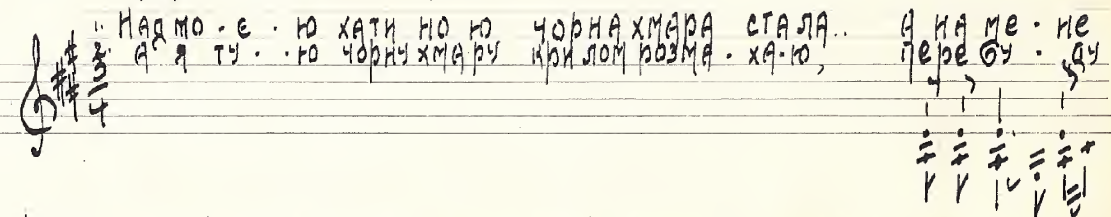 Над мо - є - ю хати но ю чорна хмара стала.. а на ме - не
а я ту - - ю чорну хмару крилом розма - ха-ю, пере бу - ду
3/4